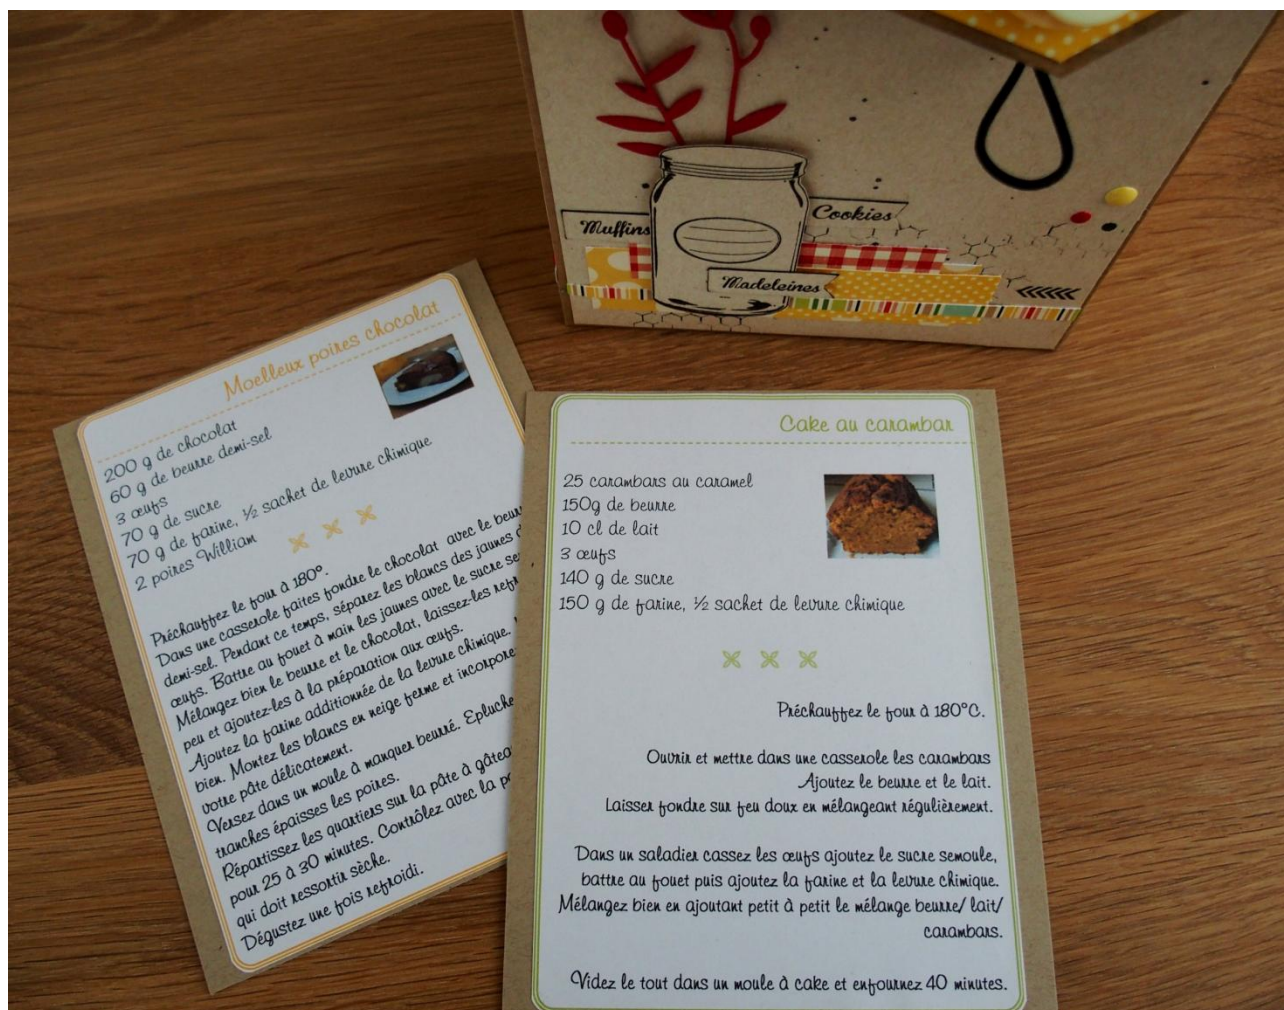 Muffins
Cookies
Madeleines
Moelleux poires chocolat
200 g de chocolat
60 g de beurre demi-sel
3 œufs
70 g de sucre
70 g de farine, ½ sachet de levure chimique
2 poires William
Préchauffez le four à 180°.
Dans une casserole faites fondre le chocolat avec le
demi-sel. Pendant ce temps, séparez les blancs des jaunes
œufs. Battre au fouet à main les jaunes avec le sucre
Mélangez bien le beurre et le chocolat, laissez-les
peu et ajoutez-les à la préparation aux œufs.
Ajoutez la farine additionnée de la levure chimique.
bien. Montez les blancs en neige ferme et
votre pâte délicatement.
Versez dans un moule à manquer beurré.
tranches épaisses les poires.
Répartissez les quartiers sur la pâte à
pour 25 à 30 minutes. Contrôlez avec la
qui doit ressortir sèche.
Dégustez une fois refroidi.
Cake au carambar
25 carambars au caramel
150g de beurre
10 cl de lait
3 œufs
140 g de sucre
150 g de farine, ½ sachet de levure chimique
Préchauffez le four à 180°C.
Ouvrir et mettre dans une casserole les carambars
Ajoutez le beurre et le lait.
Laisser fondre sur feu doux en mélangeant régulièrement.
Dans un saladier cassez les œufs ajoutez le sucre semoule,
battre au fouet puis ajoutez la farine et la levure chimique.
Mélangez bien en ajoutant petit à petit le mélange beurre/ lait/
carambars.
Videz le tout dans un moule à cake et enfournez 40 minutes.